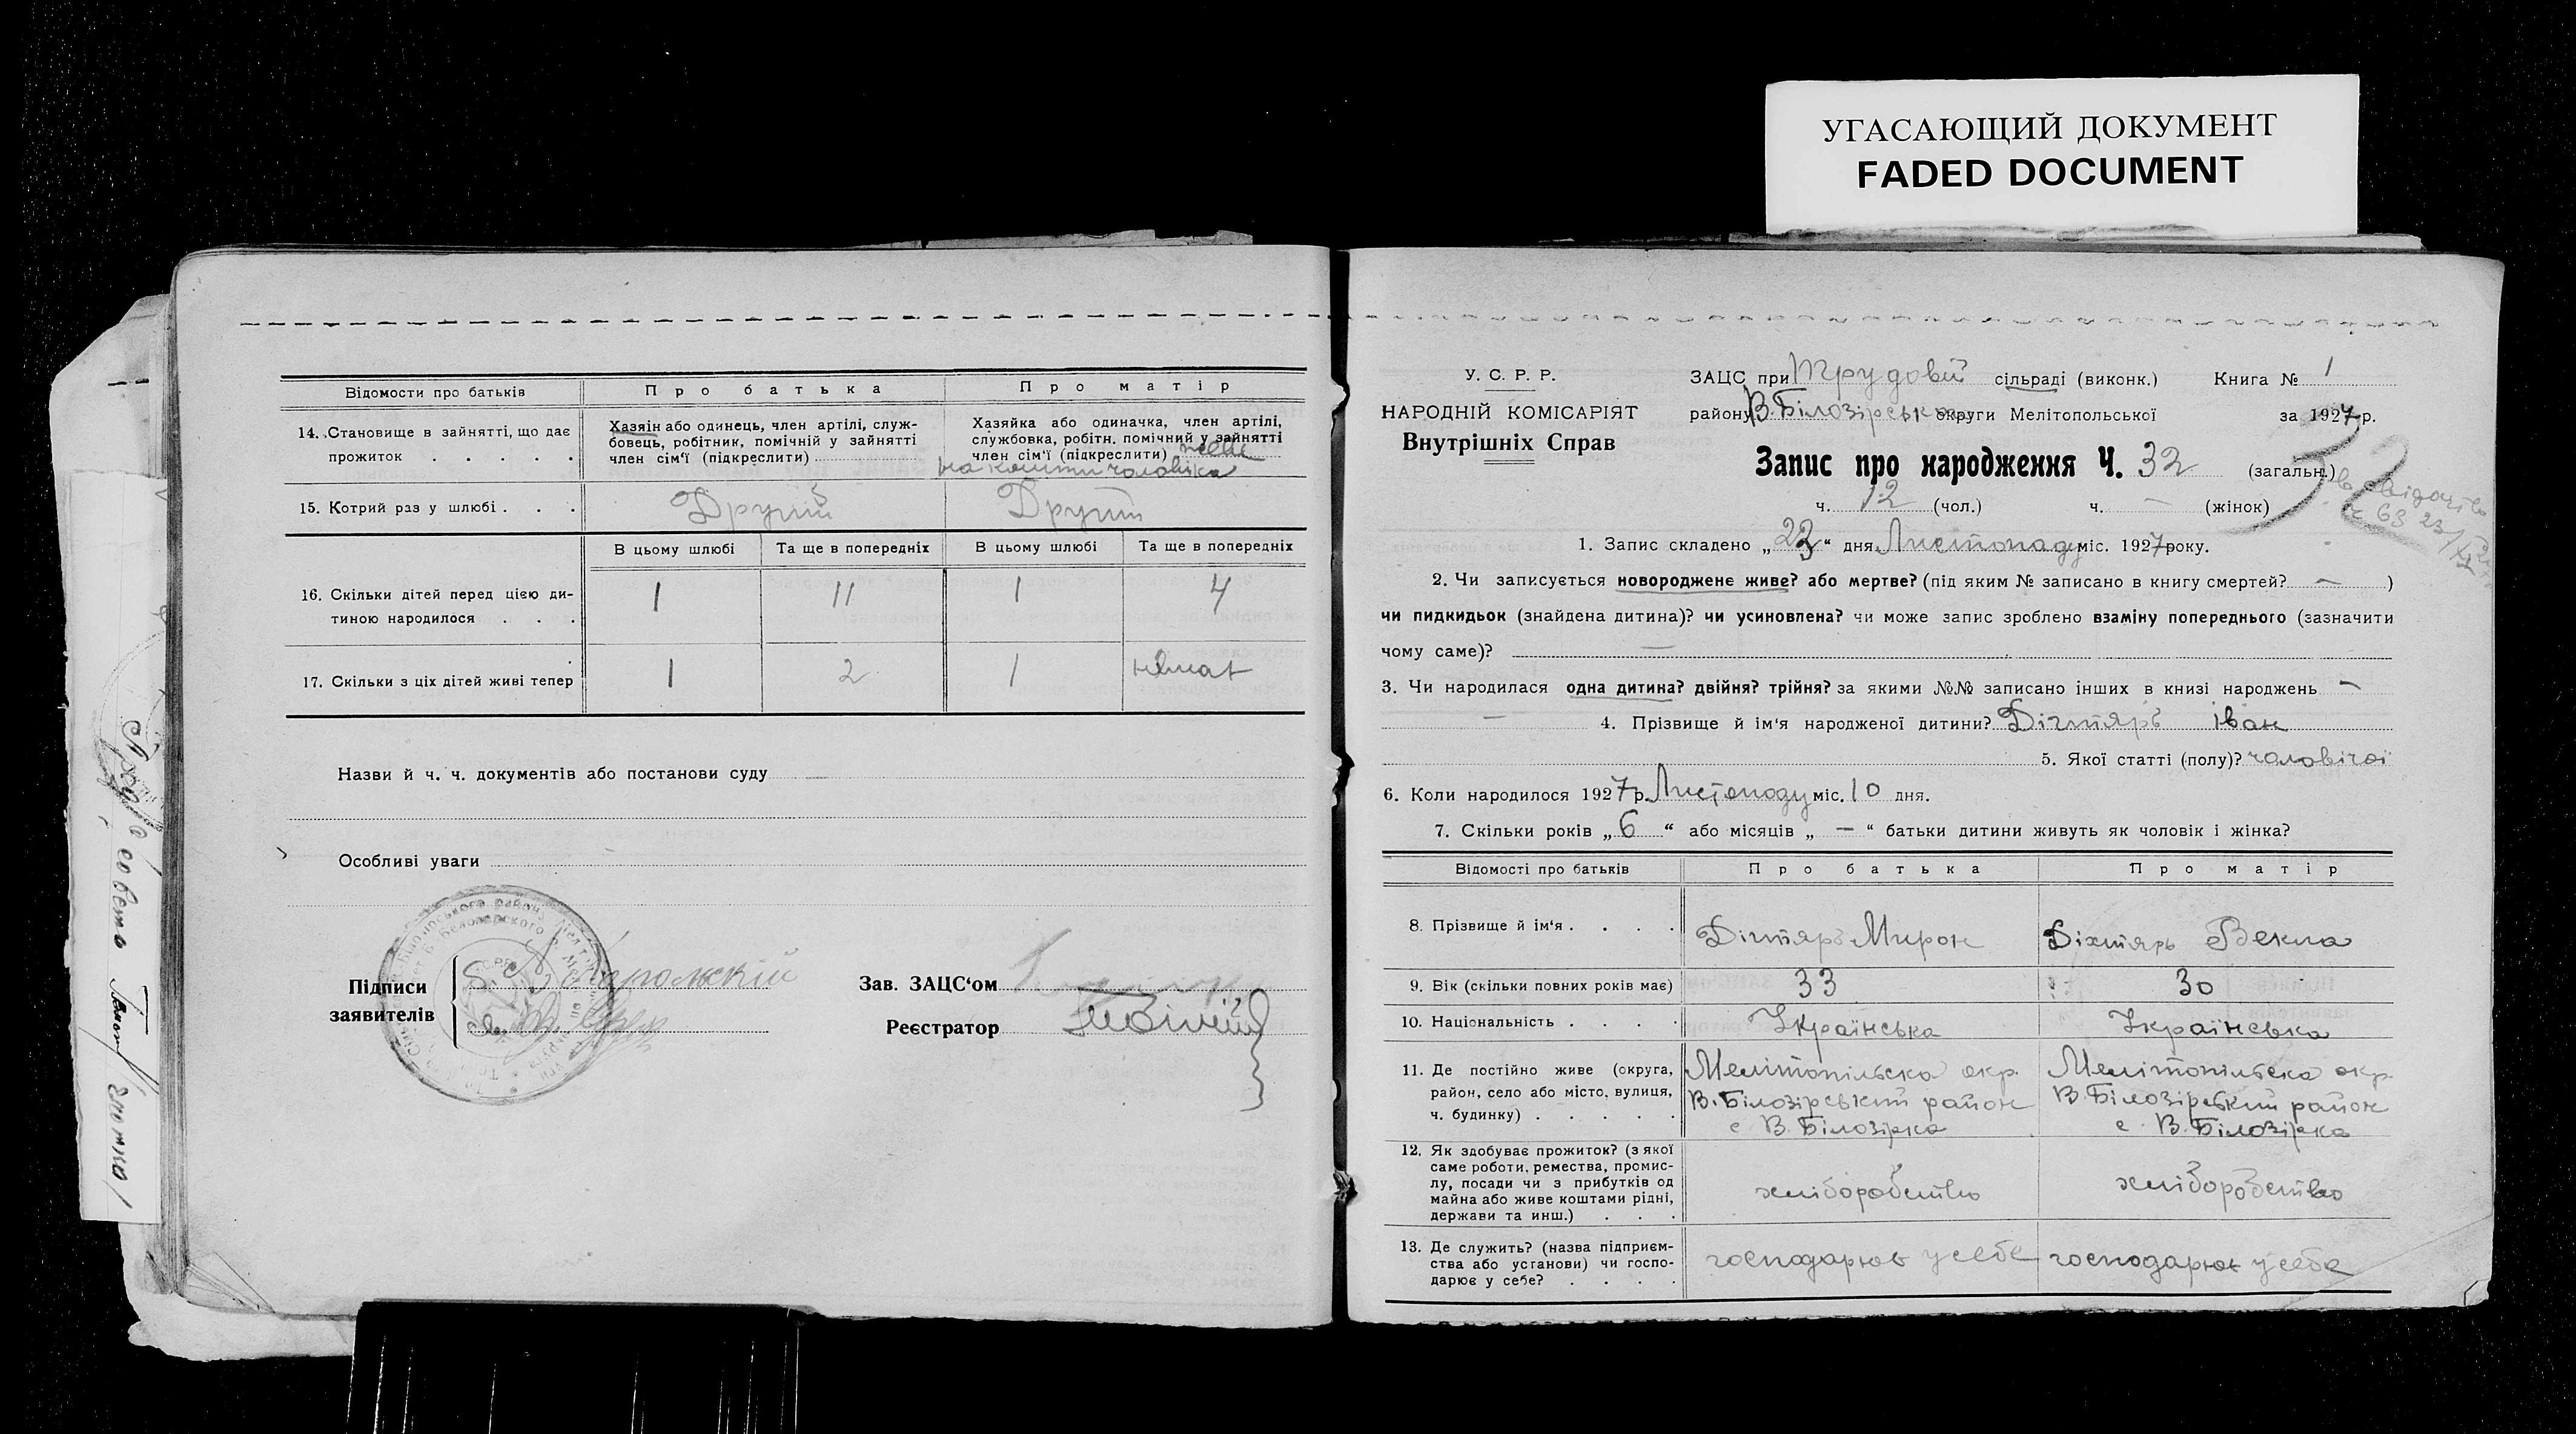 УГАСАЮЩИЙ ДОКУМЕНТ
FADED DOCUMENT
Відомости про батьків Про батька Про матір
14. Становище в зайнятті, що дає
прожиток . . . . .
Хазяїн або одинець, член артілі, служ-
бовець, робітник, помічній у зайнятті
член сім'ї (підкреслити)
Хазяйка або одиначка, член артілі,
службовка, робітн. помічний у зайнятті
член сім'ї (підкреслити) живе
на кошти чоловіка
15. Котрий раз у шлюбі . . . Другий Другий
В цьому шлюбі Та ще в попередніх В цьому шлюбі Та ще в попередніх
16. Скільки дітей перед цією ди-
тиною народилося . . . 1 11 1 4
17. Скільки з ціх дітей живі тепер 1 2 1 немає
Назви й ч. ч. документів або постанови суду
Особливі уваги
Підписи
заявителів
Зав. ЗАЦС'ом
Реєстратор
У. С. Р. Р.
НАРОДНІЙ КОМІСАРІЯТ
Внутрішніх Справ
ЗАЦС при Трудовій сільраді (виконк.) Книга № 1
району В. Білозірськ округи Мелітопольської за 1927 р.
Запис про народження Ч. 32 (загальн.)
32
ч. 12 (чол.) ч. — (жінок)
1. Запис складено „23“ дня Листопаду міс. 1927 року.
2. Чи записується новороджене живе? або мертве? (під яким № записано в книгу смертей? — )
чи пидкидьок (знайдена дитина)? чи усиновлена? чи може запис зроблено взаміну попереднього (зазначити
чому саме)? —
3. Чи народилася одна дитина? двійня? трійня? за якими №№ записано інших в книзі народжень —
— 4. Прізвище й ім'я народженої дитини? Дігтярь Іван
5. Якої статті (полу)? чоловічої
6. Коли народилося 1927 р. Листопаду міс. 10 дня.
7. Скільки років „6“ або місяців „—“ батьки дитини живуть як чоловік і жінка?
Відомості про батьків Про батька Про матір
8. Прізвище й ім'я . . . . Дігтярь Мирон Діхтярь Векла
9. Вік (скільки повних років має) 33 30
10. Національність . . . . Українська Українська
11. Де постійно живе (округа,
район, село або місто, вулиця,
ч. будинку) . . . . .
Мелітопільска окр.
В. Білозірський район
с В. Білозірка
Мелітопільска окр.
В. Білозірський район
с. В. Білозірка
12. Як здобуває прожиток? (з якої
саме роботи, ремества, промис-
лу, посади чи з прибутків од
майна або живе коштами рідні,
держави та инш.) . . .
хліборобство хліборобство
13. Де служить? (назва підприєм-
ства або установи) чи госпо-
дарює у себе? . . . .
господарює у себе господарює у себе